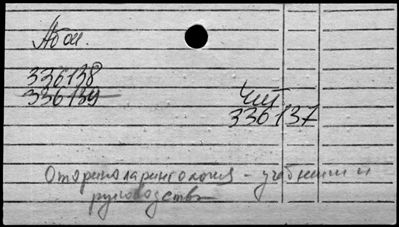 Абон.
336138
336139
Чит
336137
Оториноларингология - учебники и
руководства